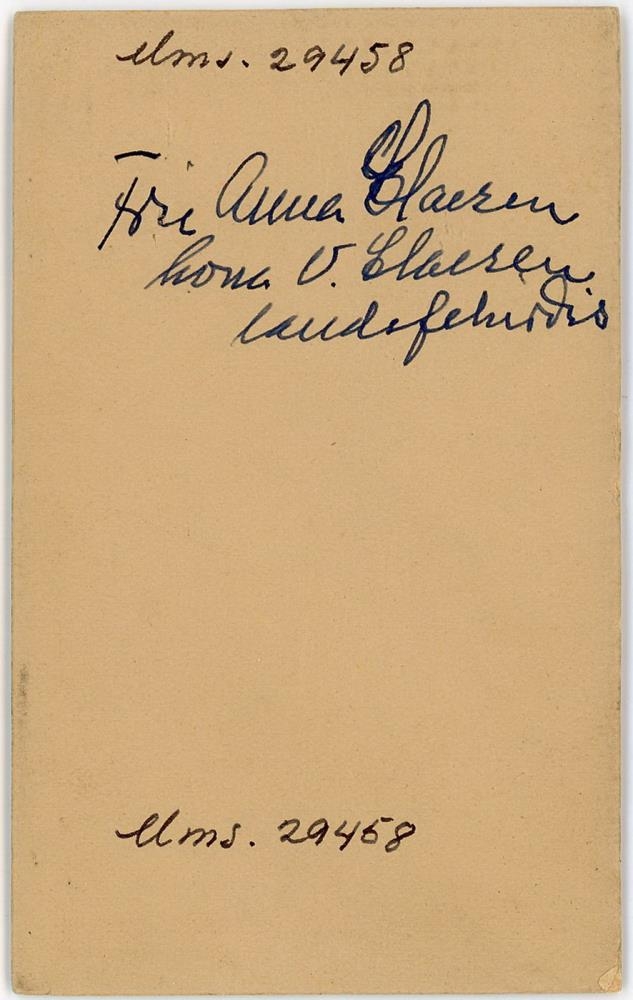 Mms. 29458
Frú Anna Claesen
kona V. Claesen
landsféhirðis
Mms. 29458